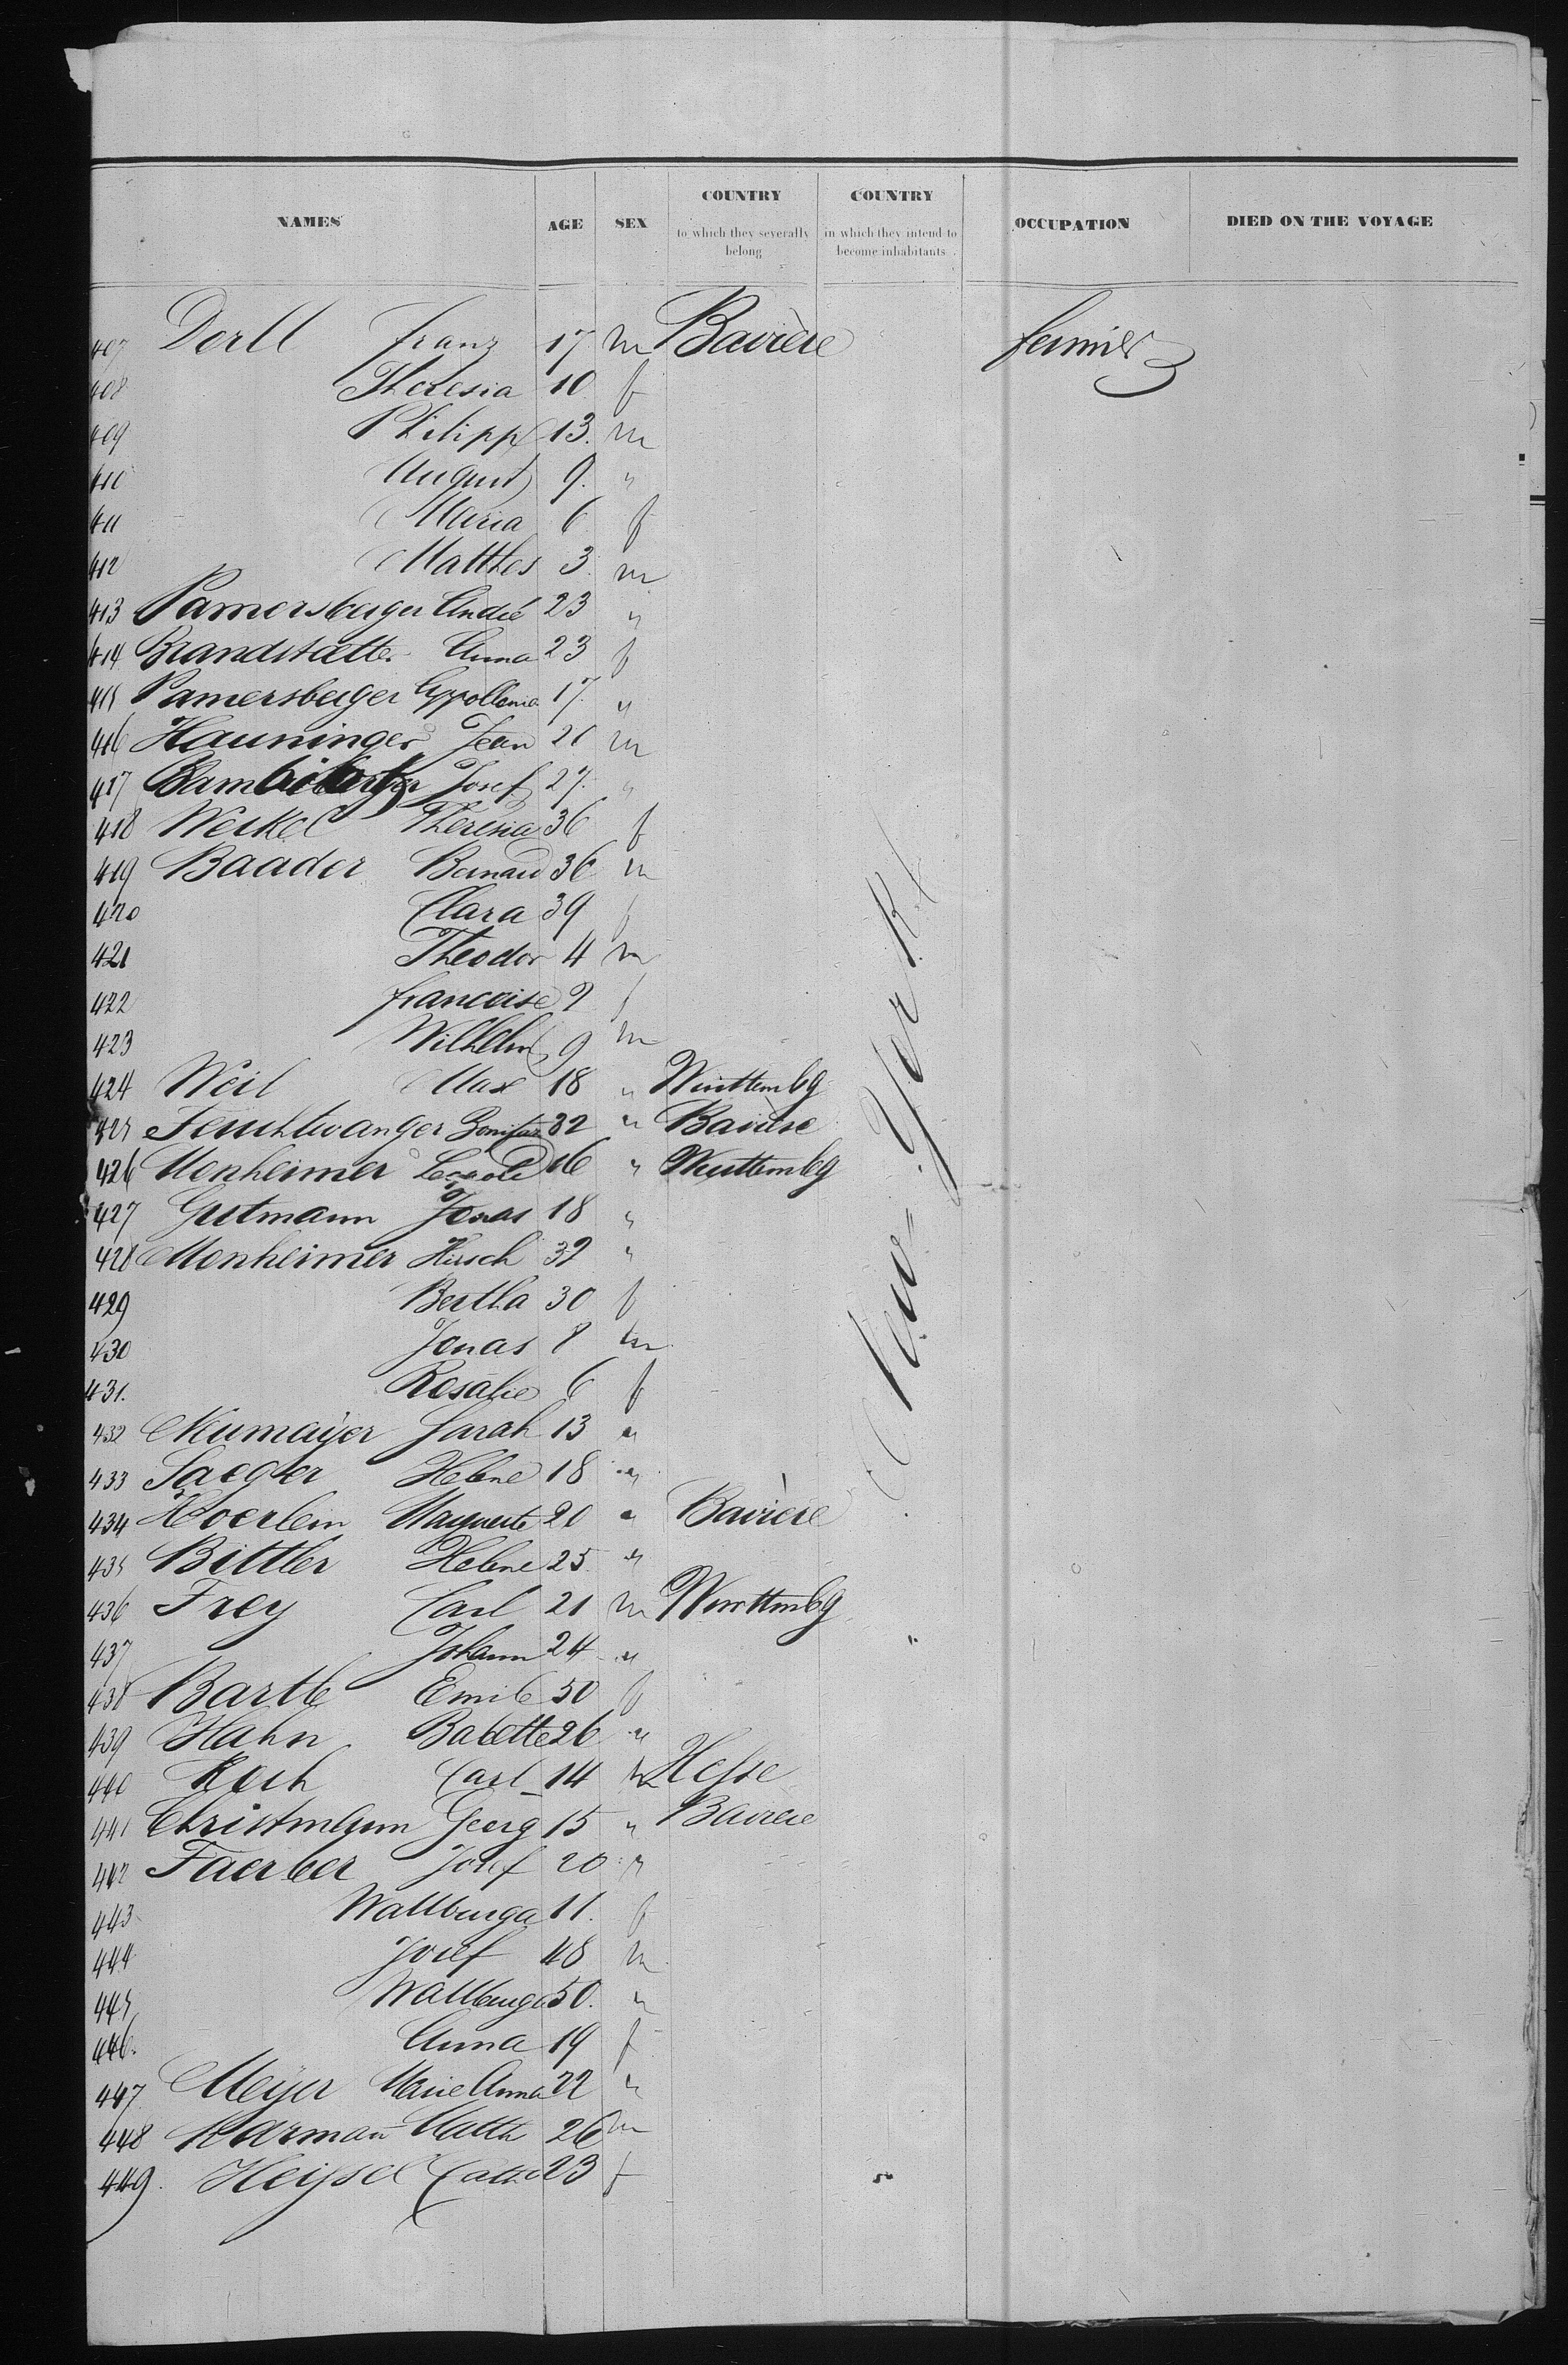 NAMES AGE SEX COUNTRY to which they severally belong COUNTRY in which they intend to become inhabitants OCCUPATION DIED ON THE VOYAGE
407 Dorll Franz 17 m Bavière fermier
408 Theresia 10 f
409 Philipp 13. m
410 August 9. "
411 Maria 6 f
412 Matthes 3. m
413 Pamersberger André 23 "
414 Brandstatter Anna 23 f
415 Pamersberger Appollonia 17. "
416 Hauninger Jean 21 m
417 Josef 27. "
418 Weikel Theresia 36 f
419 Baader Bernard 36 m
420 Clara 39 f
421 Theodor 4 m
422 francoise 2 f
423 Wilhelm 9 m
424 Weil Max 18 " Württembg
425 Feuchtwanger Bonifaz 32 " Bavière
426 Monheimer Leopold 16 " Württembg
427 Gutmann Jonas 18 "
428 Monheimer Hirsch 32 "
429 Bertha 30 f
430 Jonas 8 m
431. Rosalie 6 f
432 Neumaÿer Sarah 13 "
433 Saegler Helene 18 "
434 Hoerlein Marguerite 20 " Bavière
435 Bittler Helene 25. "
436 Frey Carl 21 m Württembg
437 Johann 24 "
438 Bartle Emile 50 f
439 Hahn Babette 26 "
440 Koch Carl 14 m Hesse
441 Christmann Georg 15 " Bavière
442 Faerber Josef 20 "
443 Wallburga 11. f
444 Josef 48 m
445 Wallburga 50. "
446. Anna 19 f
447. Meÿer Marie Anna 22 "
448 Karmann Matth 26 m
449. Heysel Cath. 23 f
New-York